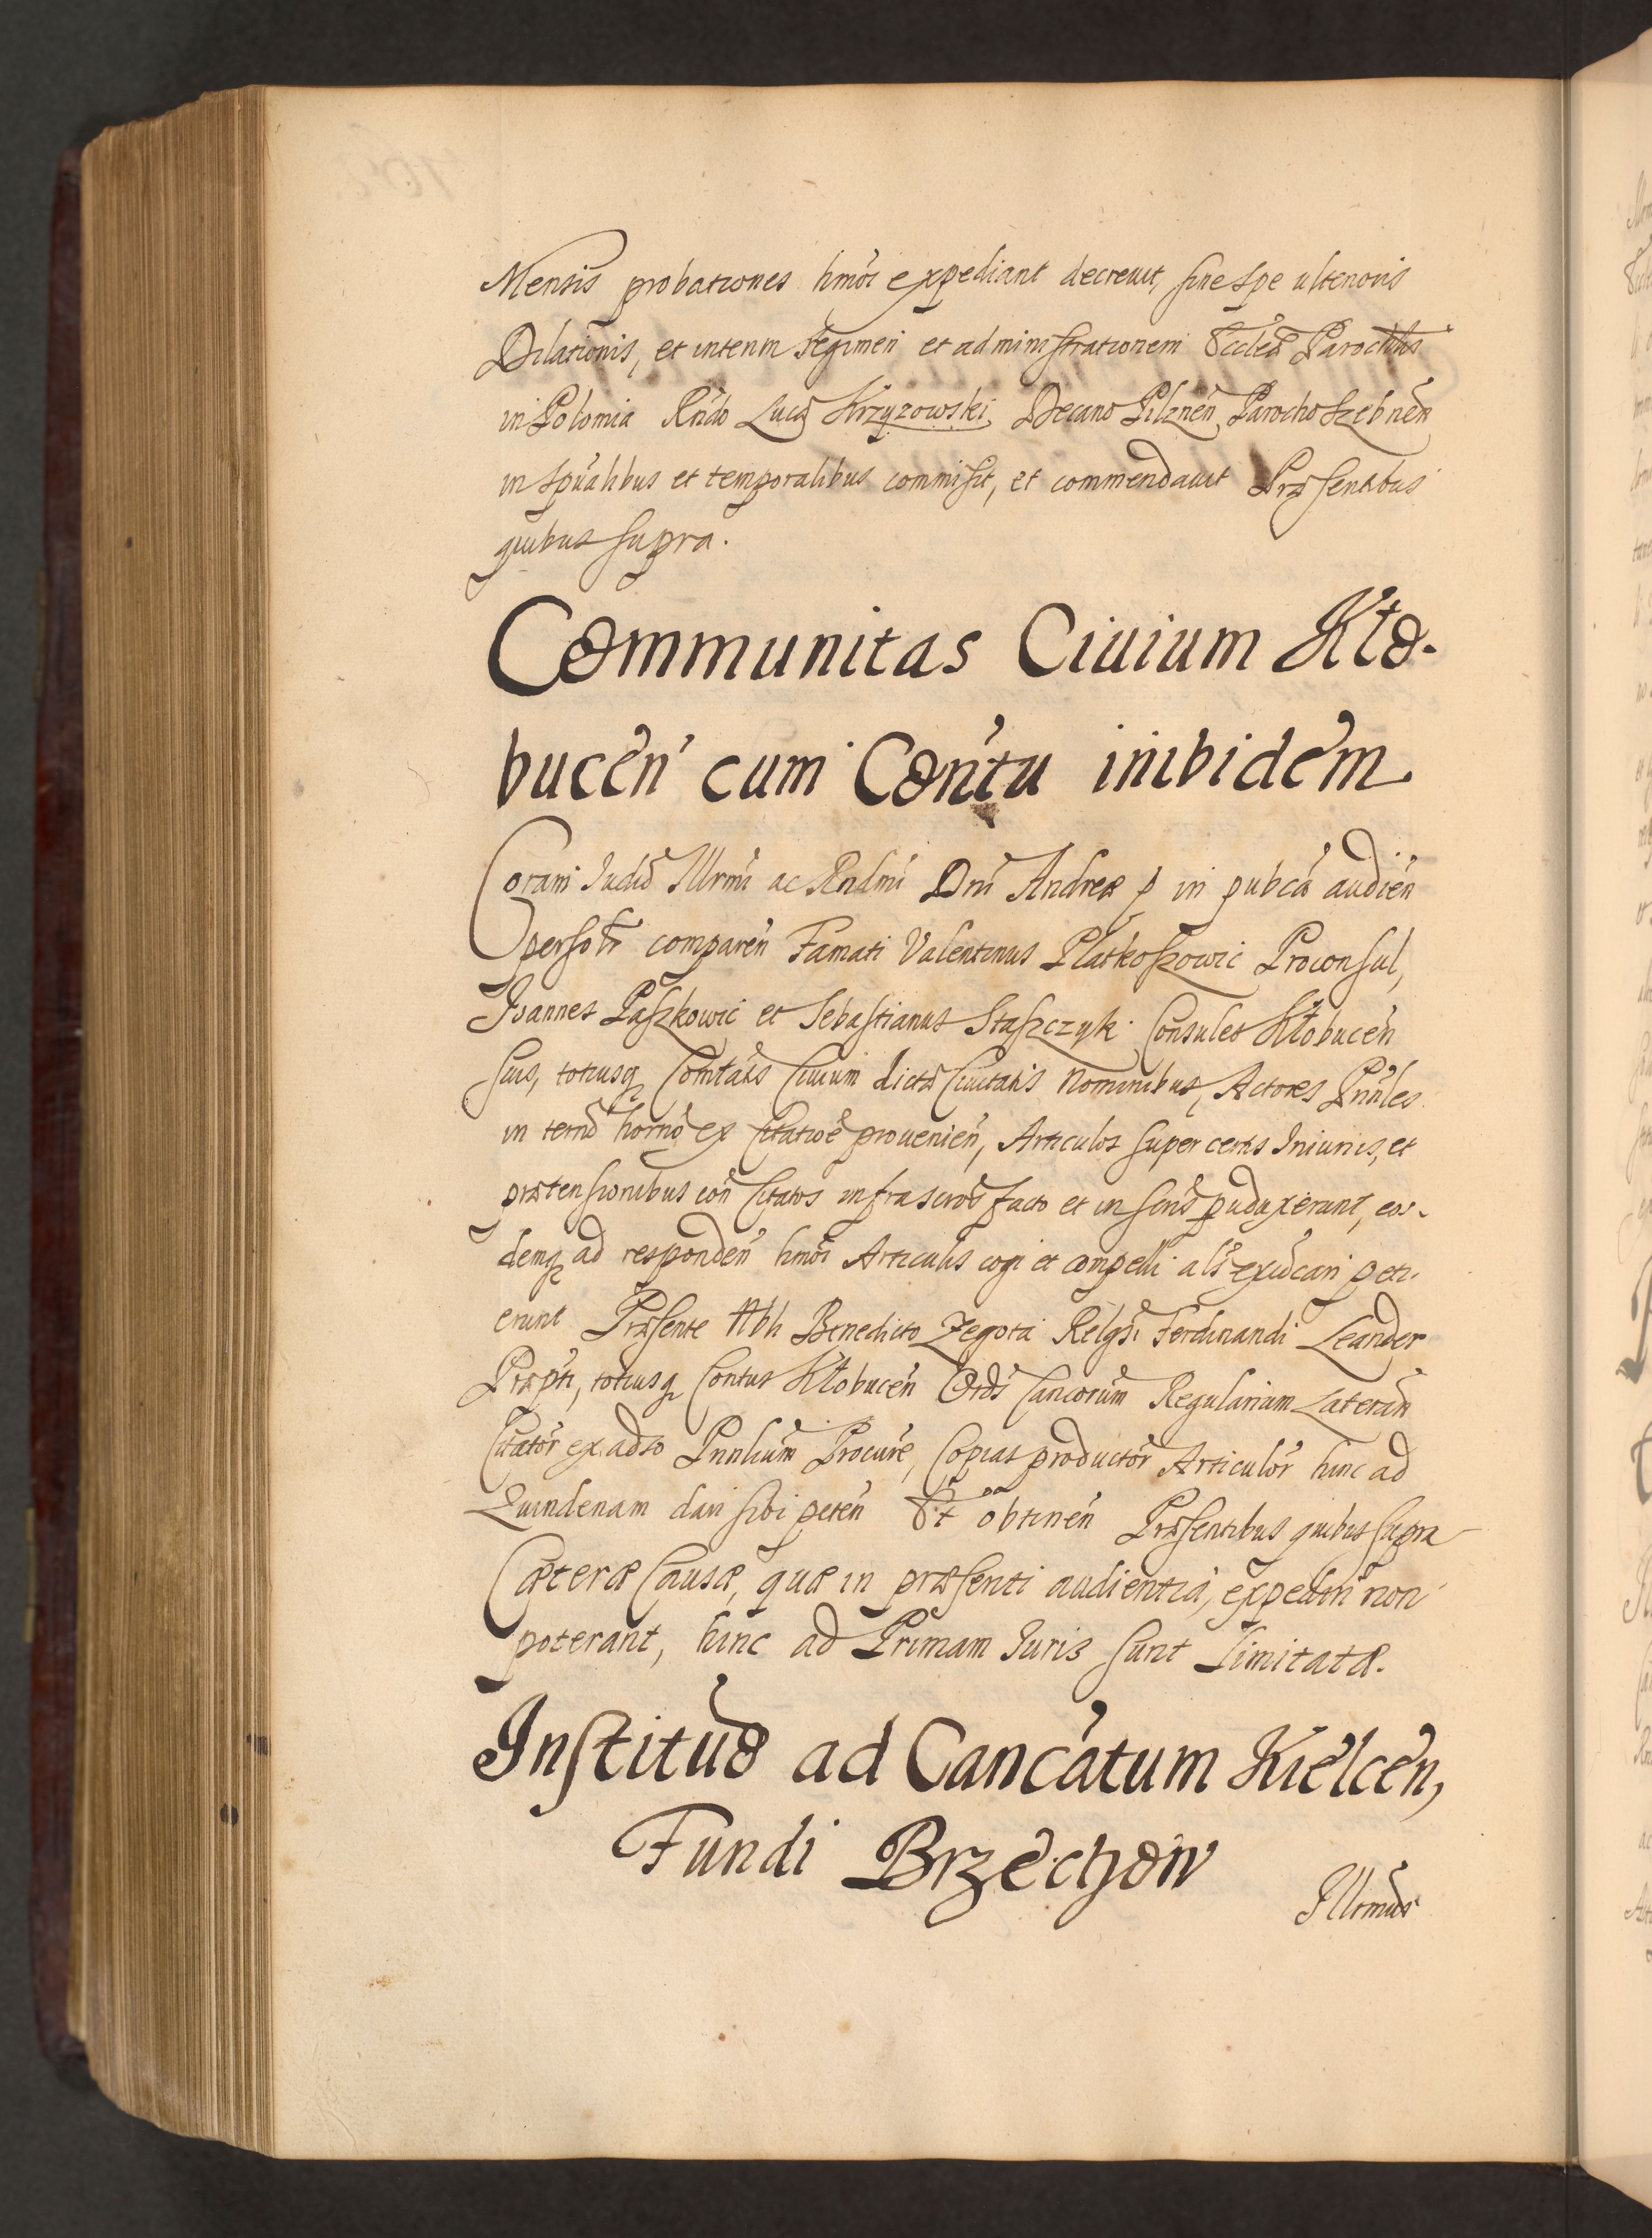 Mensis probationes hmoi expediant decreuit, sine spe ulterioris
Dilationis, et interim regimen et administrationem Eccleæ Parochlis
in Polomia Rndo Lucæ Krzyzowski, Decano Pilznen, Parocho Szebnen
in spualibus et temporalibus commisit, et commendauit Præsentibus
quibus supra.
Communitas Ciuium Kło-
bucen cum Conũtu inibidem
Coram Judio Illrmi ac Rndmi Dni Andreæ p in pubca audien
persolr comparen Famati Valentinus Platkoszowic Proconsul,
Joannes Paszkowic et Sebastianus Staszczyk Consules Kłobucen
suis, totiusq Comitatis Ciuium dictæ Ciuitatis Nominibus, Actores Prinles
in termo horno ex citatioe prouenien, Articulos super certis Iniuriis, et
prætensionibus con Citatos infrascros facto et in scris produxerunt, eos-
demq ad responden hmoi Articulis cogi et compelli als exicari peti-
erunt Præsente Nbli Benedicto Zegota Relgsi Ferdinandi Leander
Præpti, totiusq Contus Kłobucen Ords Cancorum Regularium Lateran
Citator ex adso Prinlium Procure, Copias productor Articulor hinc ad
Quindenam dari sibi peten Et obtinen Præsentibus quibus supra
Cæteræ Causæ, quæ in præsenti audientia, expediri non
poterant, hinc ad Primam Iuris sunt Limitatæ.
Institũo ad Cancatum Kielcen,
Fundi Brzechow
Illrmus